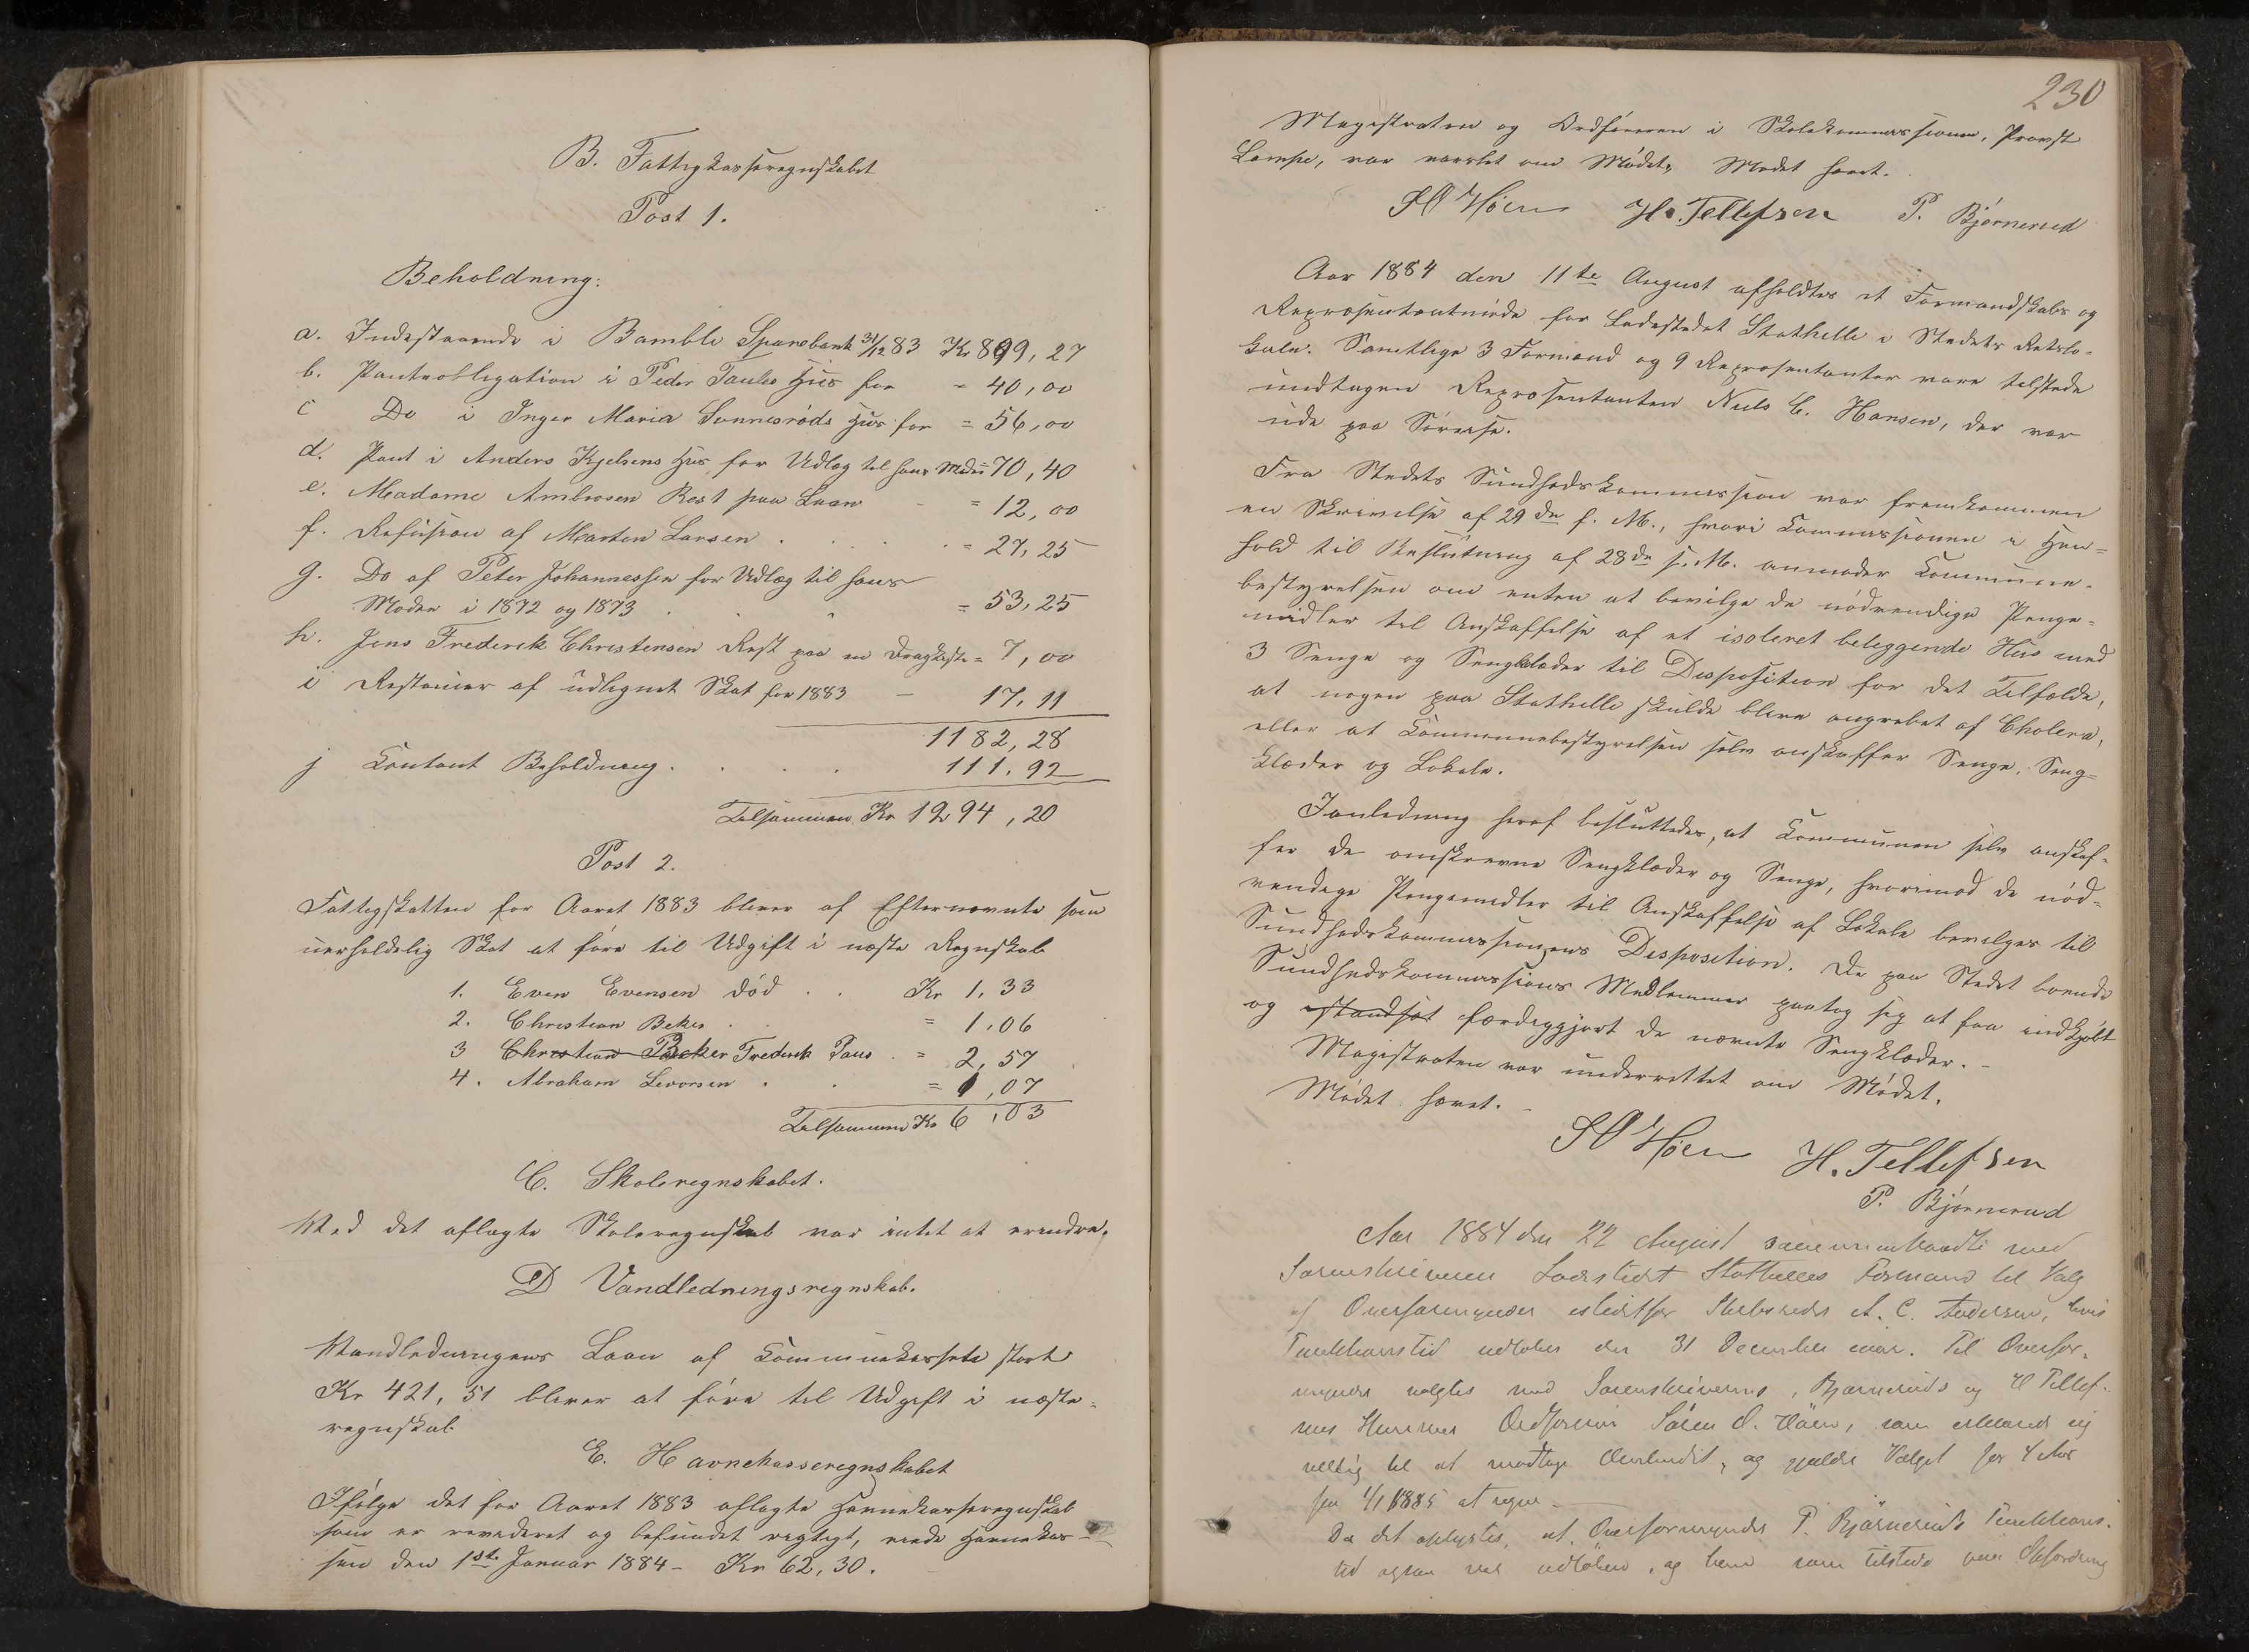 B. Fattigkasseregnskabet
Post 1.
Beholdning:
a. Indestaaende i Bamble Sparebank 31/12 83 Kr 899,27
b. Panteobligation i Peder Taules Hus for - 40,00
c Do i Inger Maria Sunnerøds Hus for = 56,00
d. Pant i Anders Kjelsens Hus for Udlæg til hans Moder = 70,40
e. Madame Ambrosen Rest paa Laan - = 12,00
f. Refusion af Marten Larsen . . . = 27,25
g. Do af Peter Johannessen for Udlæg til hans
Moder i 1872 og 1873 . . = 53,25
h. Jens Frederik Christensen Rest paa en Dragkiste = 7,00
i Restancer af udlignet Skat for 1883 - 17,11
1182,28
j Contant Beholdning . . . . 111,92
Tilsammen Kr 1294,20
Post 2.
Fattigskatten for Aaret 1883 bliver af Efternævnte som
uerholdelig Skat at føre til Udgift i næste Regnskab
1. Even Evensen død . . Kr 1,33
2. Christian Beker . = 1,06
3 Christian Becker Frederik Paus . = 2,57
4. Abraham Levorsen . . = 1,07
Tilsammen Kr 6,03
C. Skoleregnskabet.
Ved det aflagte Skoleregnskab var intet at erindre.
D Vandledningsregnskab.
Vandledningens Laan af Communekassen stort
Kr 421,51 bliver at føre til Udgift i næste
regnskab
E. Havnekasseregnskabet
Ifølge det for Aaret 1883 aflagte Havnekasseregnskab
som er revideret og befundet rigtigt, eiede Havnekas-
sen den 1ste Januar 1884 - Kr 62,30.
230
Magistraten og Ordføreren i Skolekommissionen, Provst
Lampe, var varslet om Mødet. Mødet hævet.
SO Høen H. Tellefsen P. Bjørnerud
Aar 1884 den 11te August afholdtes et Formandskabs og
Repræsentantmøde for Ladestedet Stathelle i Stedets Retslo-
kale. Samtlige 3 Formænd og 9 Repræsentanter vare tilstede
undtagen Repræsentanten Niels C. Hansen, der var
ude paa Søreise.
Fra Stedets Sundhedskommission var fremkommen
en Skrivelse af 29de f. M., hvori Commissionen i Hen-
hold til Beslutning af 28de s. M. anmoder Commune-
bestyrelsen om enten at bevilge de nødvendige Penge-
midler til Anskaffelse af et isoleret beliggende Hus med
3 Senge og Sengklæder til Disposition for det Tilfælde,
at nogen paa Stathelle skulde blive angrebet af Cholera,
eller at Communebestyrelsen selv anskaffer Senge, Seng-
klæder og Lokale.
Ianledning heraf besluttedes, at Communen selv anskaf-
fer de omskrevne Sengklæder og Senge, hvorimod de nød-
vendige Pengemidler til Anskaffelse af Lokale bevilges til
Sundhedskommissionens Disposition. De paa Stedet boende
Sundhedskommissions Medlemmer paatog sig at faa indkjøbt
og istandsat færdiggjort de nævnte Sengklæder. -
Magistraten var underrettet om Mødet.
Mødet hævet. -
SO Høen H. Tellefsen
P. Bjørnerud
Aar 1884 den 22 August sammentraadte med
Sorenskriveren Ladestedet Stathelles Formænd til Valg
af Overformynder istedetfor A. C. Andersen, hvis
Funktionstid udløber den 31 December . Til Overfor-
mynder valgtes med Sorenskriverens, Bjørneruds og H Tellef-
sens Stemmer Ordfører Søren O. Høen, som erklærede sig
villig til at modtage , og gjælder Valget for 4 Aar
fra 1/1 1885 at regne. -
Da det oplystes, at Overformynder P. Bjørneruds Funktions-
tid ogsaa udløben, og han som tilstede paa Opfordring